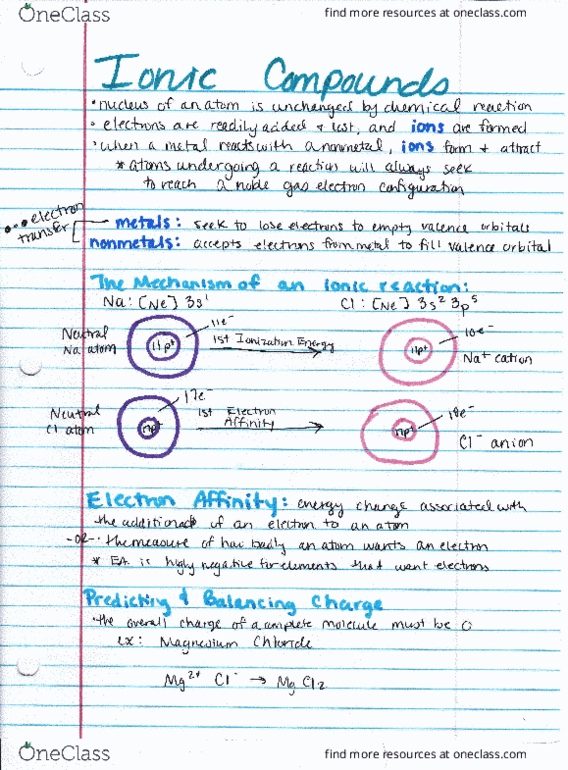 OneClass
find more resources at oneclass.com
Ionic Compounds
• nucleus of an atom is unchanged by chemical reaction
• electrons are readily added + lost, and ions are formed
• when a metal reacts with a nonmetal, ions form + attract
* atoms undergoing a reaction will always seek
to reach a noble gas electron configuration
electron
transfer
metals: seek to lose electrons to empty valence orbitals
nonmetals: accepts electrons from metal to fill valence orbital
The Mechanism of an ionic reaction:
Na: [Ne] 3s¹
Cl: [Ne] 3s² 3p⁵
Neutral
Na atom
11p⁺
11e⁻
1st Ionization Energy
11p⁺
10e⁻
Na⁺ cation
Neutral
Cl atom
17p⁺
17e⁻
1st Electron
Affinity
17p⁺
18e⁻
Cl⁻ anion
Electron Affinity: energy change associated with
the addition of an electron to an atom
-OR- the measure of how badly an atom wants an electron
* EA is highly negative for elements that want electrons
Predicting & Balancing Charge
• the overall charge of a complete molecule must be 0
ex: Magnesium Chloride
Mg²⁺ Cl⁻ → MgCl₂
OneClass
find more resources at oneclass.com